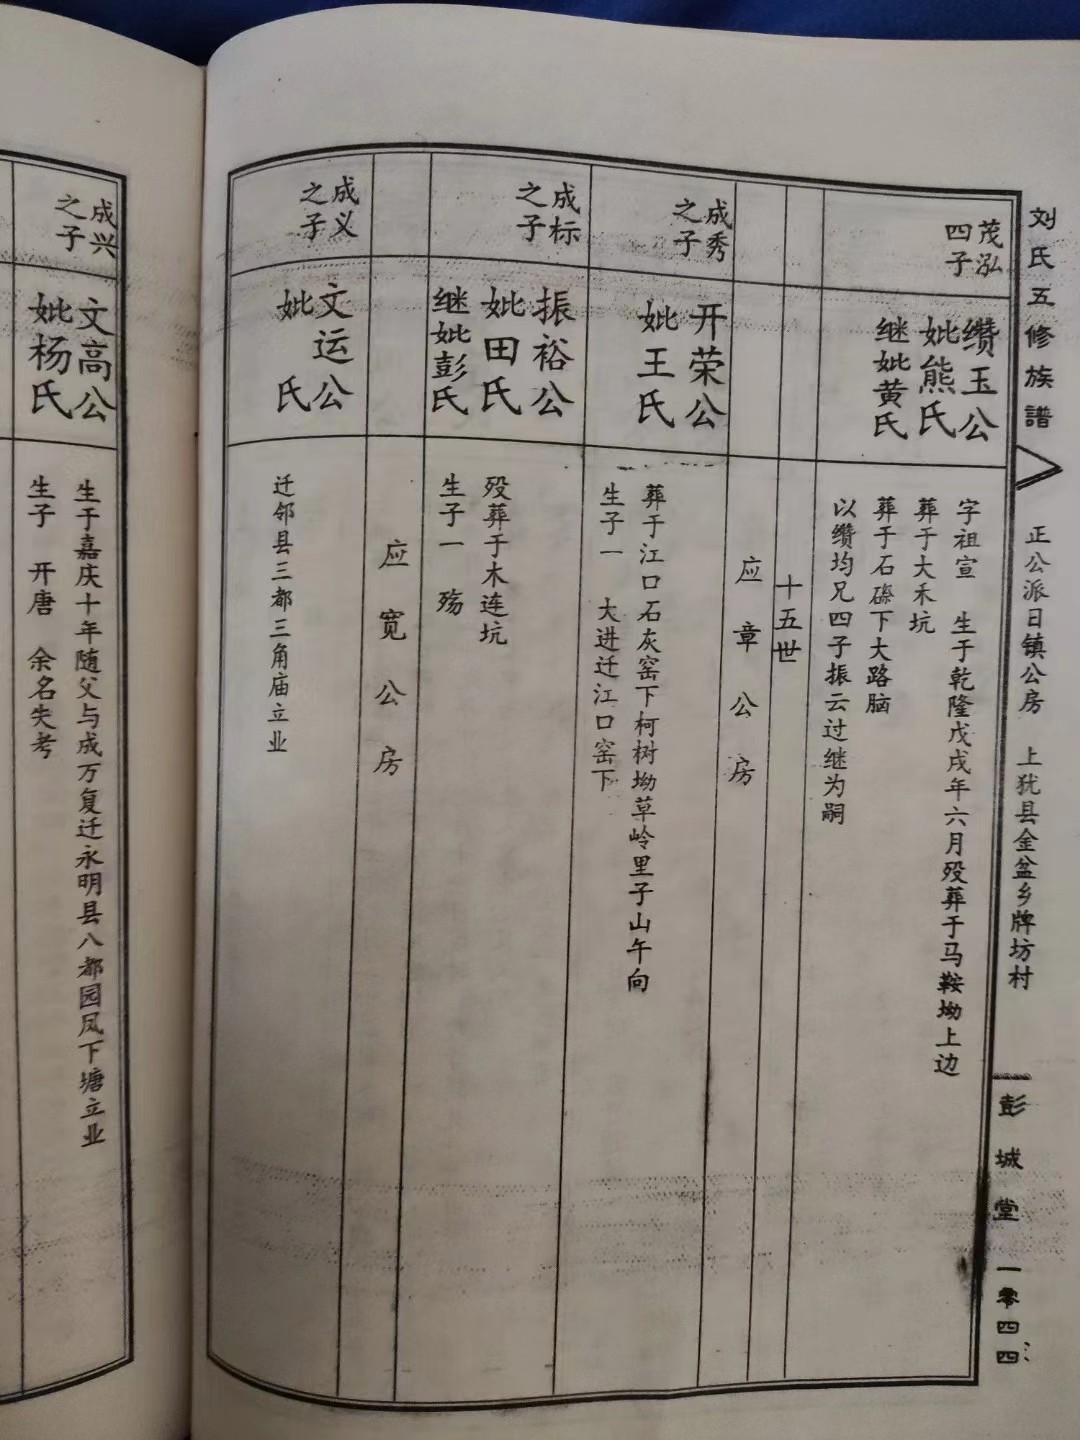 刘氏五修族譜
正公派日镇公房 上犹县金盆乡牌坊村
彭城堂
一零四四
茂泓
四子
缵玉公
妣熊氏
继妣黄氏
字祖宣 生于乾隆戊戌年六月殁葬于马鞍坳上边
葬于大禾坑
葬于石磜下大路脑
以缵均兄四子振云过继为嗣
十五世
应章公房
成秀
之子
开荣公
妣王氏
葬于江口石灰窑下柯树坳草岭里子山午向
生子一 大进迁江口窑下
成标
之子
振裕公
妣田氏
继妣彭氏
殁葬于木连坑
生子一 殇
应宽公房
成义
之子
文运公
妣 氏
迁邻县三都三角庙立业
成兴
之子
文高公
妣杨氏
生于嘉庆十年随父与成万复迁永明县八都园凤下塘立业
生子 开唐 余名失考